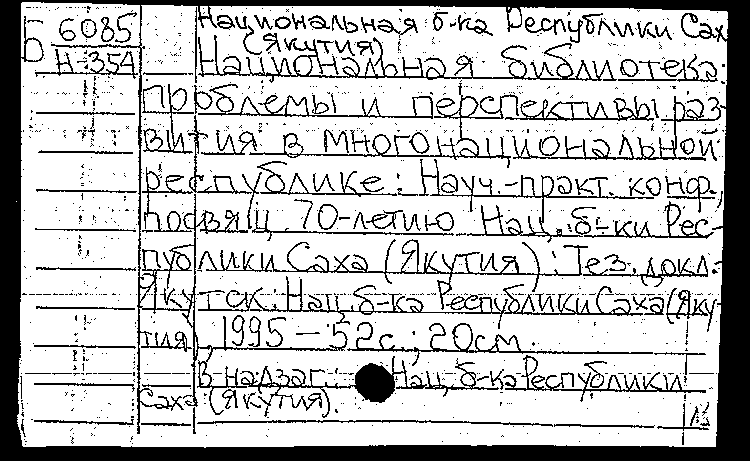 Национальная б-ка Республики Сах
(Якутия)
Б 6085
Н-354
Национальная библиотека:
проблемы и перспективы раз-
вития в многонациональной
республике: Науч.-практ. конф.,
посвящ. 70-летию Нац. б-ки Рес-
публики Саха (Якутия): Тез. докл.-
Якутск: Нац. б-ка Республики Саха (Яку-
тия), 1995 – 52с.; 20см.
В надзаг.: Нац. б-ка Республики
Саха (Якутия).